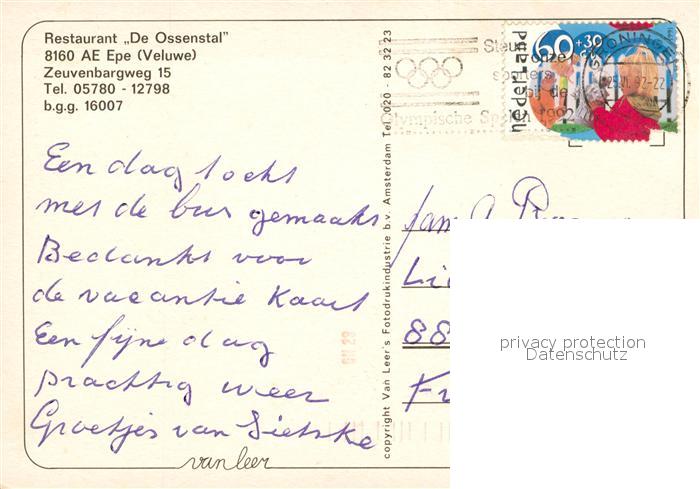 Restaurant „De Ossenstal"
8160 AE Epe (Veluwe)
Zeuvenbargweg 15
Tel. 05780 - 12798
b.g.g. 16007
Een dag tocht
met de bus gemaakt
Bedankt voor
de vacantie Kaart
Een fijne dag
prachtig weer
Groetjes van Sietske
van leer
copyright Van Leer's Fotodrukindustrie b.v. Amsterdam Tel. 020 - 82 32 23
Steun
onze
sporters
bij de
Olympische Spelen 1992
nederland
60+30
GRONINGEN
Fam
88
privacy protection
Datenschutz